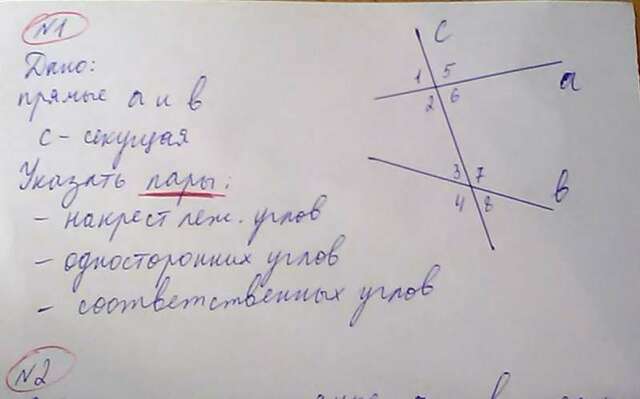 №1
Дано:
прямые a и b
c - секущая
Указать пары:
- накрест леж. углов
- односторонних углов
- соответственных углов
c
1 5
a
2 6
3 7
b
4 8
№2